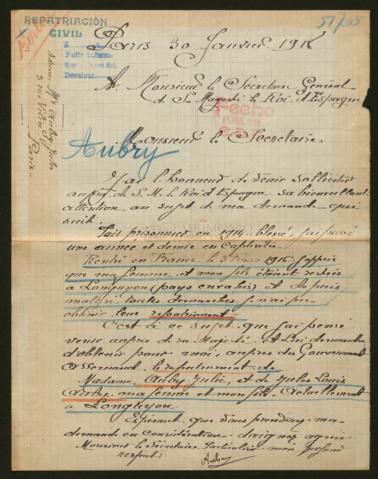 REPATRIACIÓN
CIVIL
51/05
Paris 30 Janvier 1918
A Monsieur le Secretaire Général
de Sa Majesté le Roi d'Espagne
Fecho
Monsieur le Secretaire
Aubry
J'ai l'honneur de venir solliciter
auprès de S. M. le Roi d'Espagne sa bienveillante
attention au sujet de ma demande qui
suit:
Fait prisonnier en 1914 blessé, j'ai passé
une année et demie en captivité
Rentré en France le 1916 j'appris
que ma femme et mon fils étaient restés
à Longuyon (pays envahi) et depuis
malgré toutes démarches je n'ai pu
obtenir leur rapatriement
C'est à ce sujet que j'ai pensé
venir auprès de sa Majesté le Roi demander
d'obtenir pour moi, auprès du Gouvernement
Allemand, le rapatriement de
Madame Aubry Julie, et de Jules Louis
Aubry ma femme et mon fils, actuellement
à Longuyon
Espérant que vous prendrez ma
demande en considération daignez agréer
Monsieur le Secrétaire Particulier mon profond
respect
Aubry
Paris